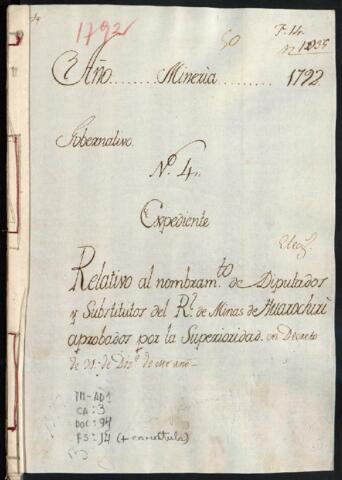 1792
50
F. 14.
Año Mineria 1792
Gobernativo
N.º 4.
Expediente
Relativo al nombram.to de Diputados
y Substitutos del R.l de Minas de Huarochirì
aprobados por la Superioridad. en Decreto
de 31. de Diz.e de este año
TM-AD1
CA: 3
DOC: 94
FS: 14 (+ carátula)